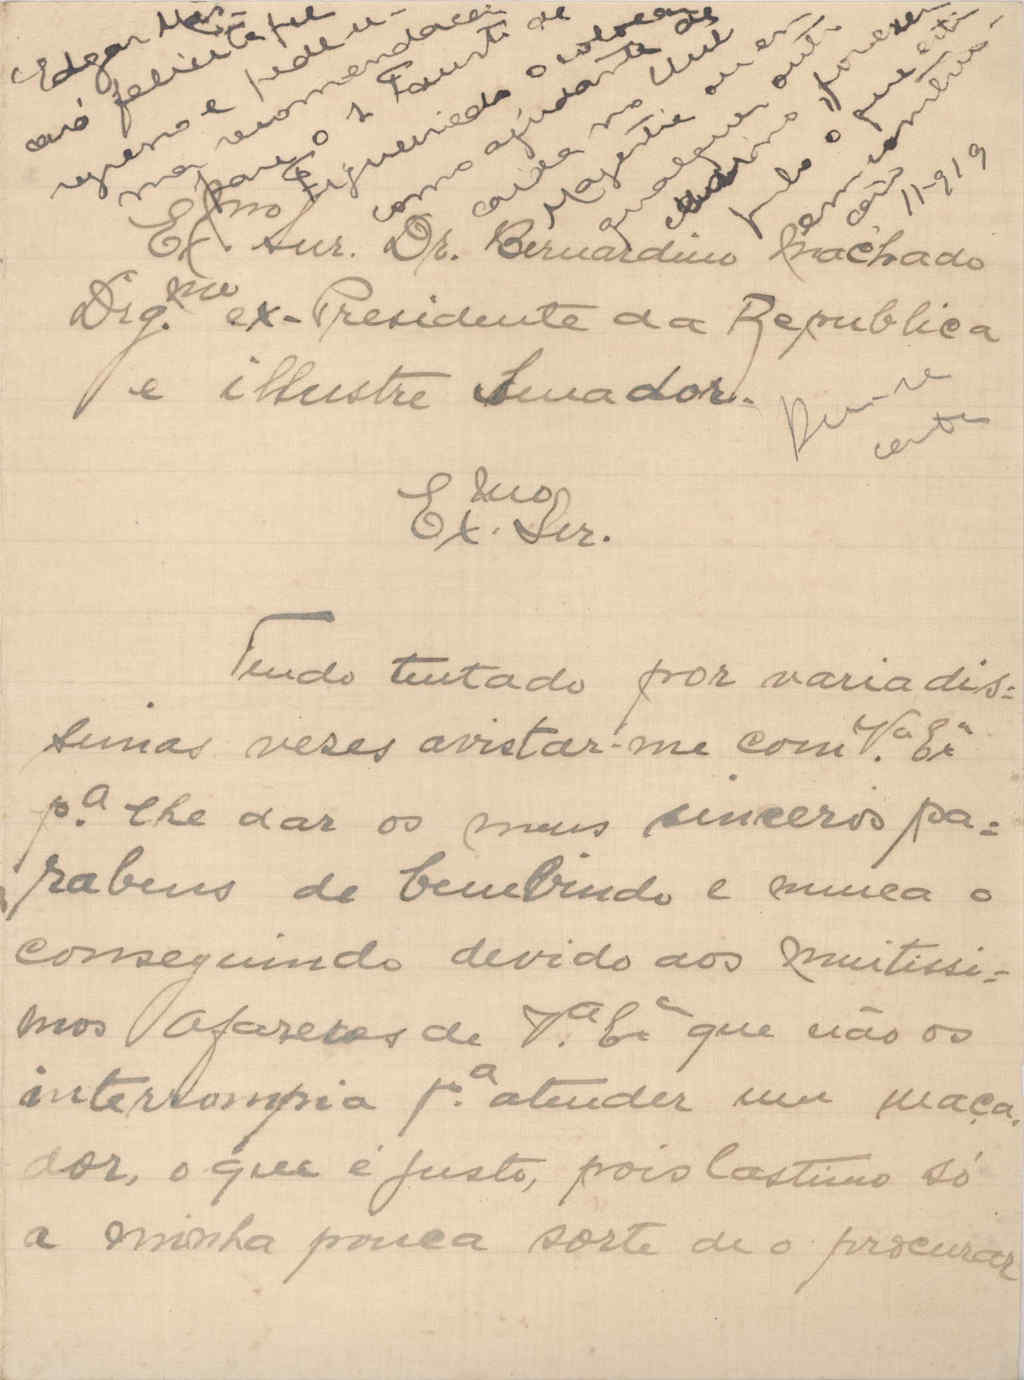 Edgar
felicita pelo
regresso e pede u-
ma recomendação
para o Dr Faurti de
Figueiredo o colocar
como ajudante de
no
ou em
qualquer outro
11-919
Ex.mo Snr. Dr. Bernardino Machado
Dig.mo ex-Presidente da Republica
e illustre Senador.
Ex.mo Snr.
Tendo tentado por variadis=
simas vezes avistar-me com V.a Ex.a
p.a lhe dar os meus sinceros pa=
rabens de bemvindo e nunca o
conseguindo devido aos muitissi=
mos afazeres de V.a Ex.a que não os
interrompia p.a atender um maça-
dor, o que é justo, pois lastimo só
a minha pouca sorte de o procurar